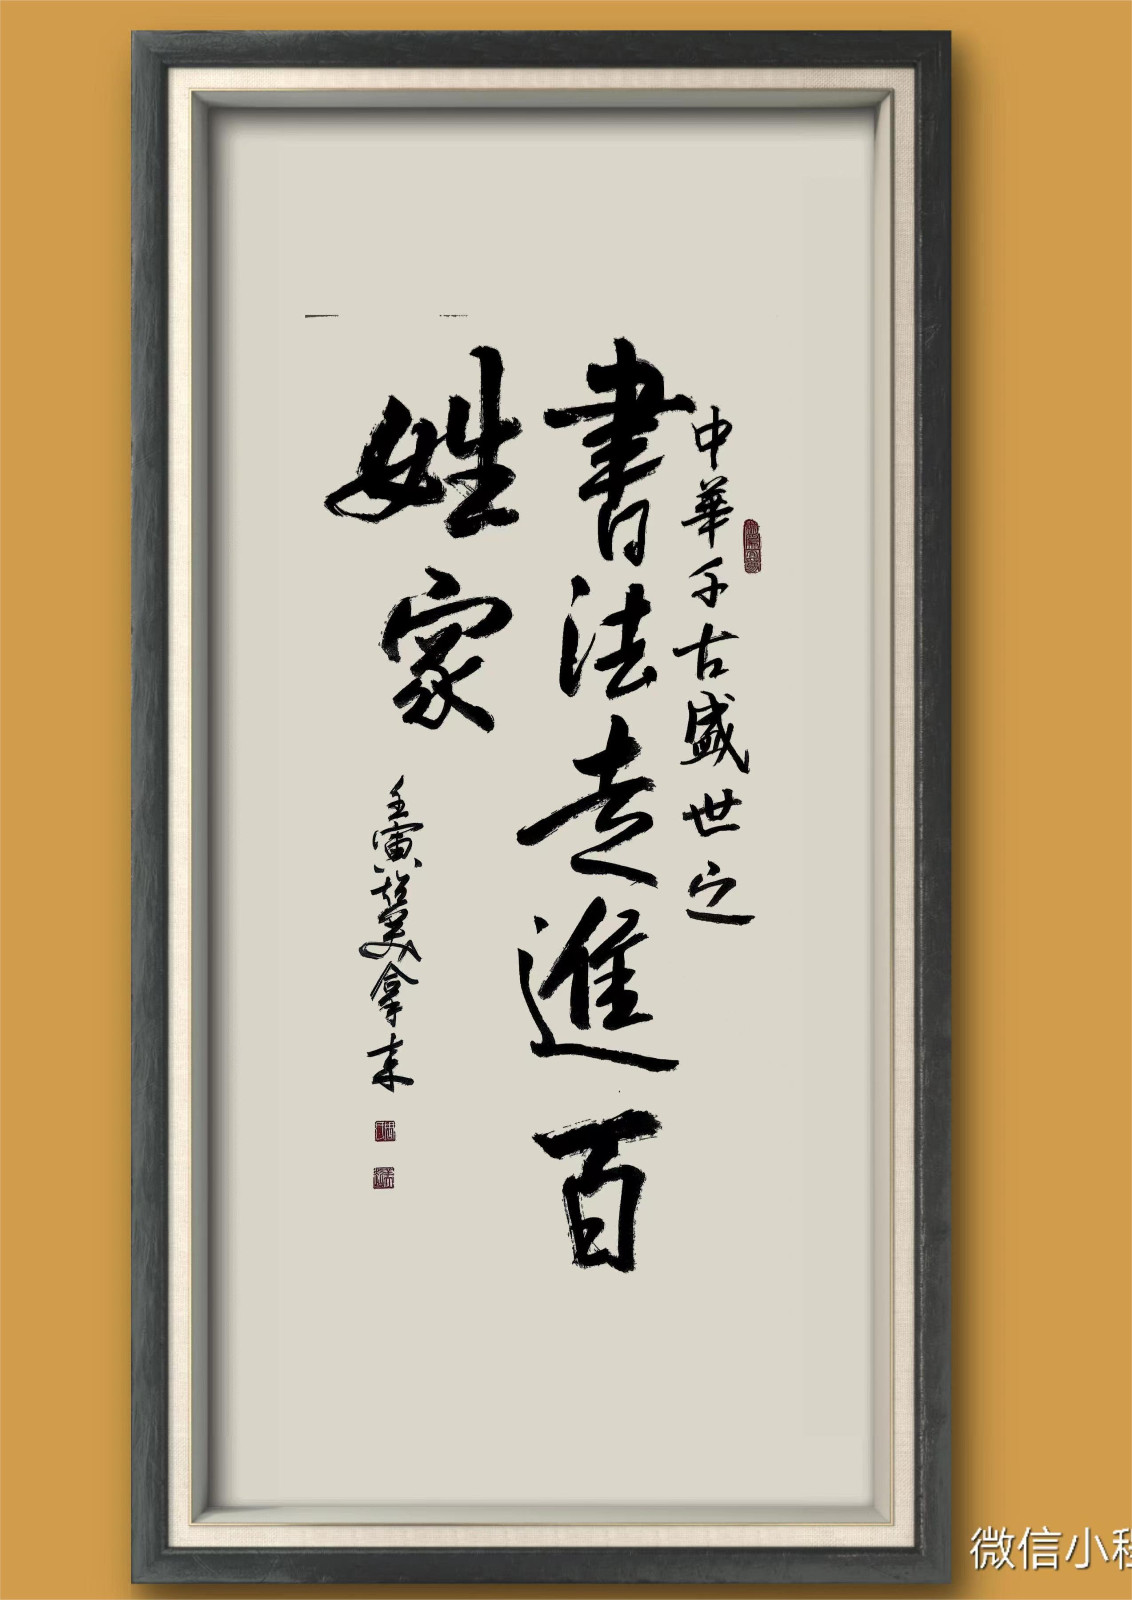 中華千古盛世之
書法走進百
姓家
壬寅 美拿来
微信小程